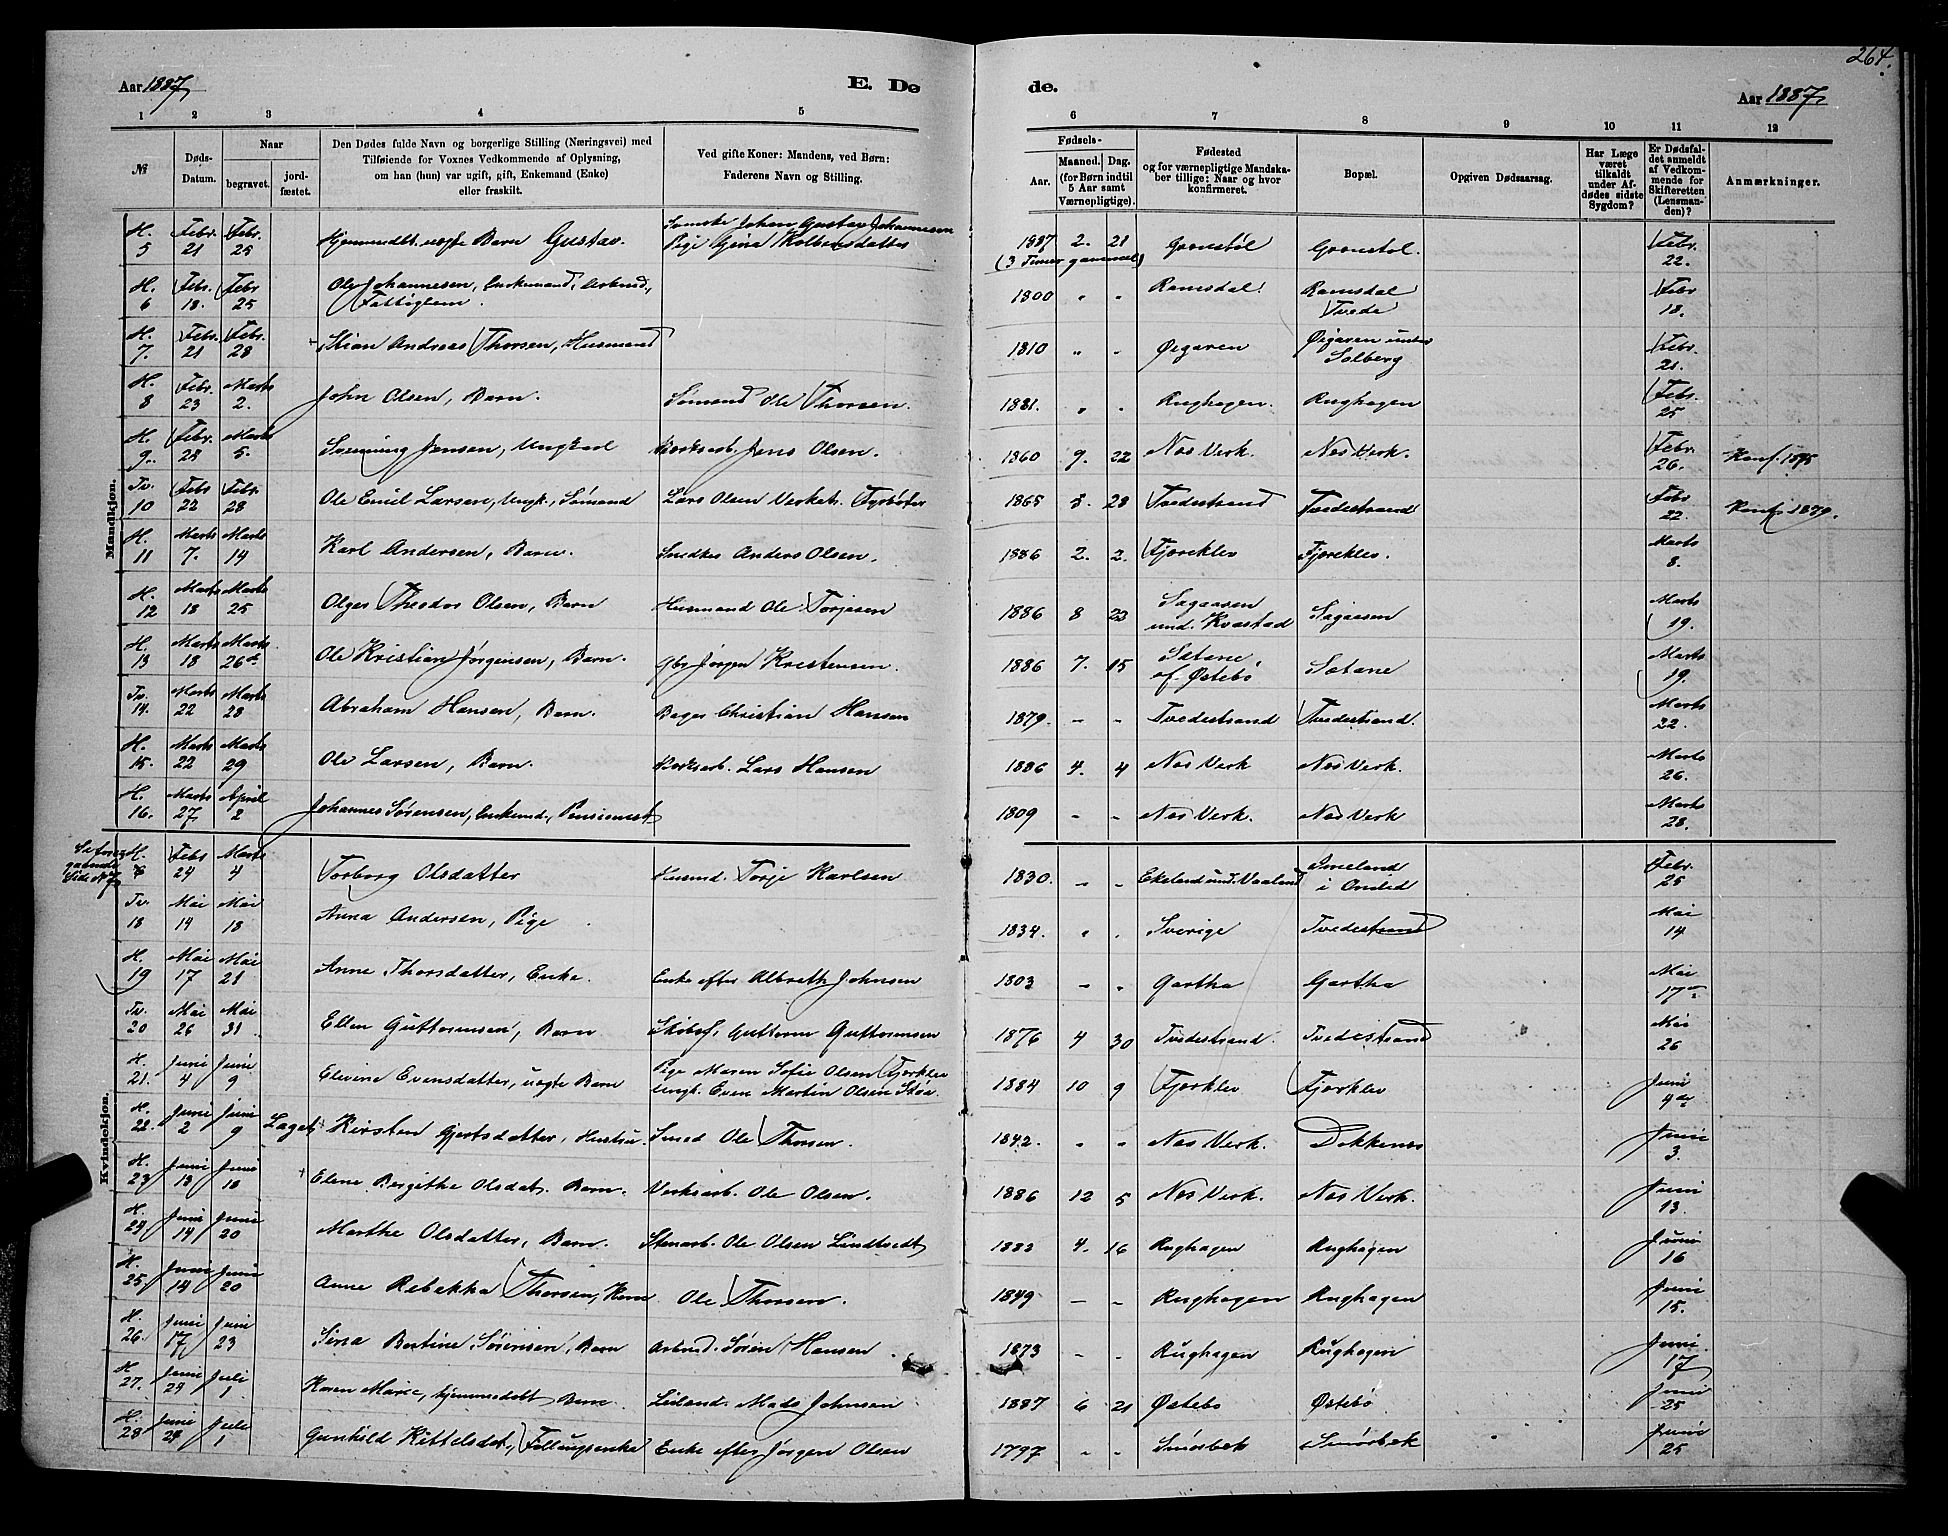 264.
Aar 1887
E. Dø
de.
Aar 1887
1 2 3 4 5 6 7 8 9 10 11 12
№
Døds-Datum.
Naar
begravet.
jordfæstet.
Den Dødes fulde Navn og borgerlige Stilling (Næringsvei) med
Tilføiende for Voxnes Vedkommende af Oplysning,
om han (hun) var ugift, gift, Enkemand (Enke)
eller fraskilt.
Ved gifte Koner: Mandens, ved Børn:
Faderens Navn og Stilling.
Fødsels-
Aar.
Maaned. Dag.
(for Børn indtil
5 Aar samt
Værnepligtige).
Fødested
og for værnepligtige Mandska-
ber tillige: Naar og hvor
konfirmeret.
Bopæl.
Opgiven Dødsaarsag.
Har Læge
været
tilkaldt
under Af-
dødes sidste
Sygdom?
Er Dødsfal-
det anmeldt
af Vedkom-
mende for
Skifteretten
(Lensman-
den)?
Anmærkninger.
Mandkjøn.
H. 5 Febr. 21 Febr. 25 Hjemmedbt. uægte Barn Gustav. Sømstr Johan Gustav Johannesen Pige Gina Kolbensdatter 1887 2. 21 (3 Timer gammel) Grønstøl Grønstøl. Febr. 22.
H. 6 Febr. 18. Febr 25 Ole Johannesen, Enkemand, Arbmd, Fattiglem. 1800 " " Ramsdal. Ramsdal Tvede Febr 18.
H. 7. Febr. 21 Febr. 28 Stian Andreas Thorsen, Husmand 1810 " " Øigaren Øigaren under Solberg Febr. 21.
H. 8 Febr. 23 Marts 2. John Olsen, Barn. Sømand Ole Thorsen. 1881. " " Rughagen. Rughagen Febr. 25
H. 9. Febr. 23 Marts 5. Svenning Jensen, Ungkarl Verksarb. Jens Olsen. 1860 9. 22 Næs Verk. Næs Verk. Febr. 26. Konf. 1875
Tv. 10 Febr 22 Febr. 28 Ole Emil Larsen, Ungk., Sømand Lars Olsen 1865 3. 28 Tvedestrand Tvedestrand Febr 22. Konf. 1879.
H. 11 Marts 7. Marts 14 Karl Andersen, Barn. Snedker Anders Olsen. 1886 2. 2. Fjæreklev Fjæreklev. Marts 8.
H. 12 Marts 18 Marts 25 Olger Theodor Olsen, Barn Husmand Ole Torjesen 1886 8 23 Sagaasen und. Kvastad Sagaasen Marts 19.
H. 13 Marts 18 Marts. 26de Ole Kristian Jørgensen, Barn. Gbr Jørgen Kristensen. 1886 7. 15 Sætane af Østebø Sætane Marts 19.
Tv. 14. Marts 22 Marts 28 Abraham Hansen, Barn. Bager Christian Hansen 1879. - - Tvedestrand Tvedestrand. Marts 22.
H. 15. Marts 22 Marts 29 Ole Larsen, Barn. Verksarb. Lars Hansen 1886 4. 4 Næs Verk Næs Verk. Marts 26.
H. 16. Marts 27 April 2 Johannes Sørensen, Enkemd., Pensionist 1809 - - Næs Verk. Næs Verk Marts 28.
Kvindekjøn.
Se foregaaende Side № 7
H. Febr 24 Marts 4 Torborg Olsdatter Husmd. Torje Karlsen 1830. - - Ekeland und. Vaaland i Febr. 25
Tv. 18 Mai 14 Mai 18 Anna Andersen, Pige 1834. " " Sverige Tvedestrand Mai 14
H. 19 Mai 17 Mai 21 Anne Thorsdatter, Enke. Enke efter Albreth Johnsen 1803 - - Gartha Gartha Mai 17de
Tv. 20 Mai 26 Mai 31 Ellen Guttormsen, Barn Skibsf. Guttorm Guttormsen 1876 4 30 Tvedestrand. Tvedestrand Mai 26
H. 21. Juni 4 Juni 9 Elevine Evensdatter, uægte Barn Pige Maren Sofie Olsen Fjærklev Ungk. Even Martin Olsen Støa. 1884 10 9 Fjærklev Fjærklev Juni 4de
H. 22. Juni 2 Juni 9 Laget Kirsten Gjertsdatter, Hustru Smed Ole Thorsen. 1842. " " Næs Verk. Dokkenes Juni 3.
H. 23 Juni 13 Juni 18 Elene Birgithe Olsdat. Barn. Verksarb. Ole Olsen. 1886 12 5 Næs Verk. Næs Verk. Juni 13.
H. 24 Juni 14 Juni 20 Marthe Olsdatter, Barn. Stenarb. Ole Olsen Lindtvedt 1883 4. 16 Rughagen Rughagen Juni 16
H. 25. Juni 14 Juni 20 Anne Rebekka Thorsen, Kone. Ole Thorsen. 1849 - - Rughagen Rughagen Juni 15.
H. 26. Juni 17 Juni 23 Sina Bertine Sørensen, Barn Arbmd. Søren Hansen. 1873 - - Rughagen Rughagen Juni 17
H. 27. Juni 24 Juli 1 Karen Marie, hjemmedøbt Barn. Leiland. Mads Johnsen 1887 6 21 Østebø Østebø Juni 25
H. 28 Juni 24 Juli 1 Gunhild Kittelsdat., Enke efter Jørgen Olsen 1797 " " Smørbæk Smørbæk Juni 25